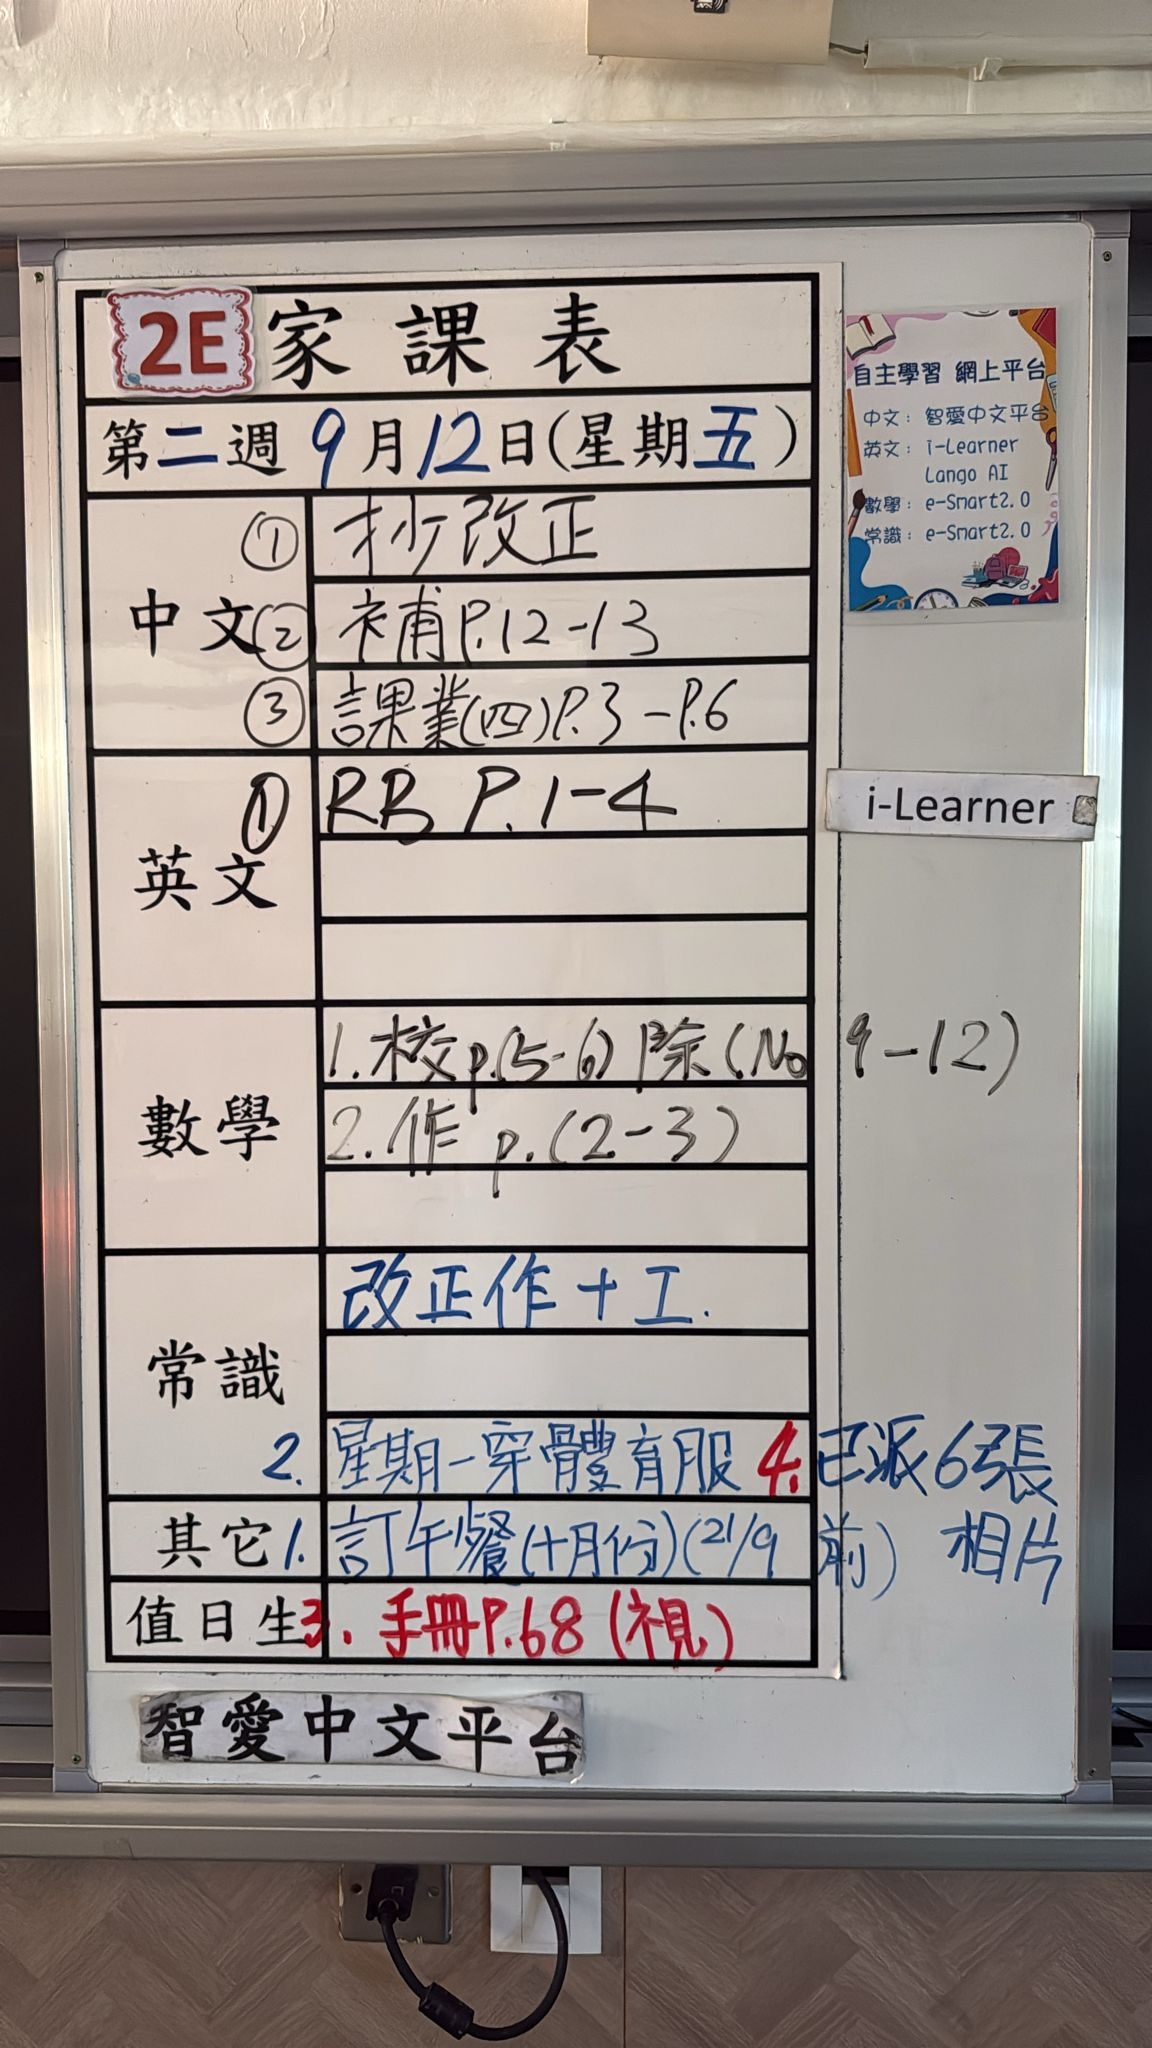 2E 家課表
第二週 9月12日(星期五)
中文
① 抄改正
② 補P.12-13
③ 課業(四)P.3-P.6
英文
① RB P.1-4
數學
1. 校p.(5-6)除(No 9-12)
2. 作 p.(2-3)
常識
改正作+工.
2. 星期一穿體育服 4. 已派6張相片
其它 1. 訂午餐(十月份)(21/9前)
值日生 3. 手冊P.68(視)
智愛中文平台
自主學習 網上平台
中文：智愛中文平台
英文：i-Learner
Lango AI
數學：e-Smart2.0
常識：e-Smart2.0
i-Learner